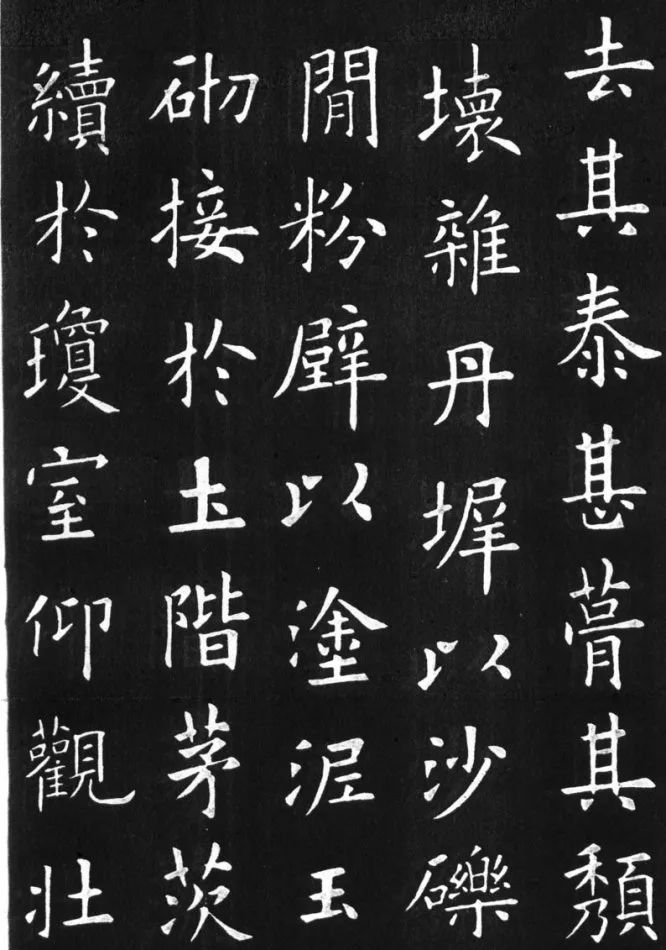 去其泰甚葺其頽
壞雜丹墀以沙礫
間粉壁以塗泥玉
砌接於土階茅茨
續於瓊室仰觀壯